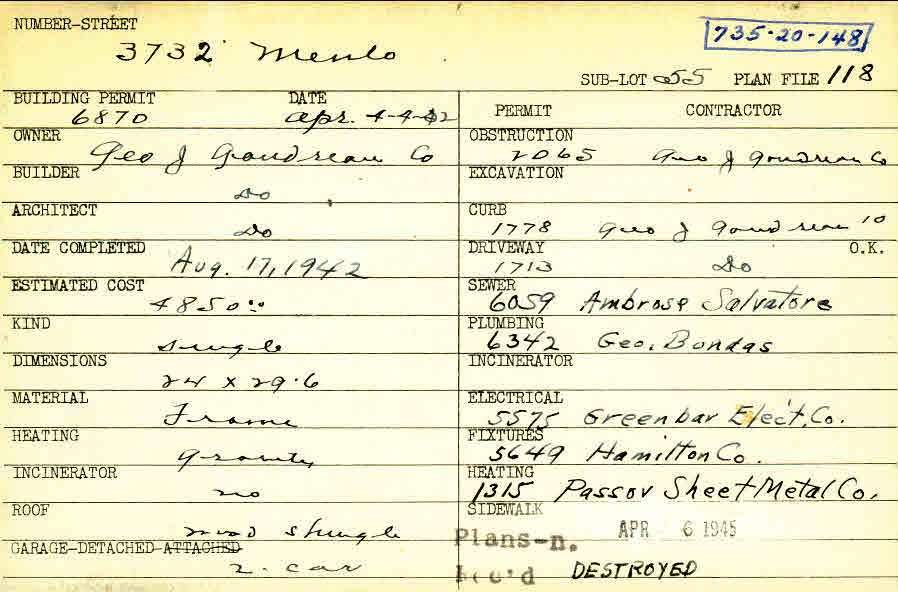 NUMBER-STREET
3732 Menlo
735-20-148
SUB-LOT 55 PLAN FILE 118
BUILDING PERMIT DATE
6870 Apr. 4-4-42
OWNER
Geo J Goudreau Co
BUILDER
Do
ARCHITECT
Do
DATE COMPLETED
Aug. 17, 1942
ESTIMATED COST
4850.00
KIND
Single
DIMENSIONS
24 x 29.6
MATERIAL
Frame
HEATING
Gravity
INCINERATOR
no
ROOF
wood shingle
GARAGE-DETACHED-ATTACHED
2. car
PERMIT CONTRACTOR
OBSTRUCTION
2065 Geo J Goudreau Co
EXCAVATION
CURB
1778 Geo J Goudreau 10
DRIVEWAY O.K.
1713 Do
SEWER
6059 Ambrose Salvatore
PLUMBING
6342 Geo. Bondas
INCINERATOR
ELECTRICAL
5575 Greenbar Elect. Co.
FIXTURES
5649 Hamilton Co.
HEATING
1315 Passov Sheet Metal Co.
SIDEWALK
Plans-n. APR 6 1945
Rec'd DESTROYED